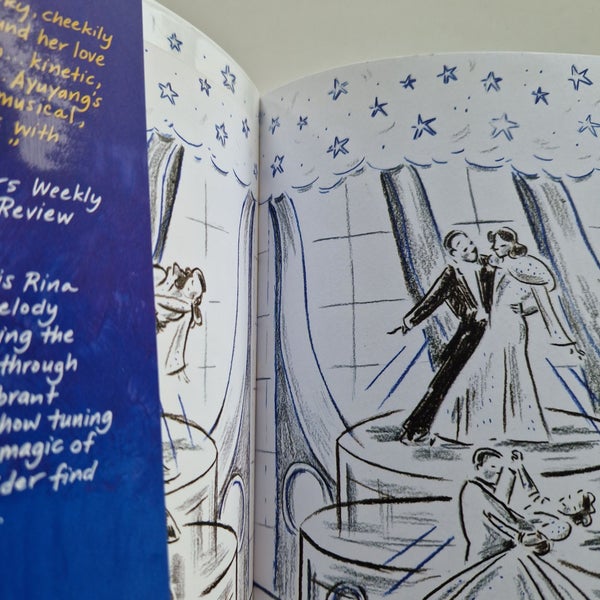 ky, cheekily
und her love
kinetic,
Ayuyang's
musical,
with
"
rs Weekly
Review
is Rina
elody
ing the
through
brant
how tuning
magic of
der find